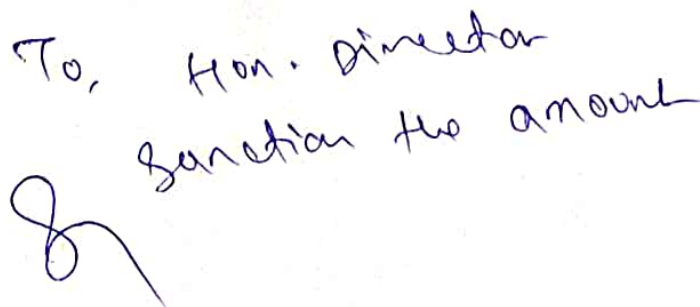 To, Hon. Director
Sanction the amount